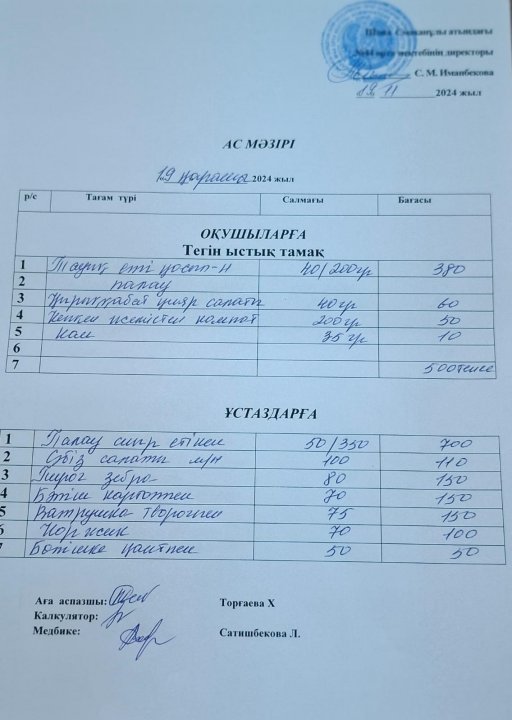 атындағы
орта мектебінің директоры
С. М. Иманбекова
19 11 2024 жыл
АС МӘЗІРІ
19 қараша 2024 жыл
р/с Тағам түрі Салмағы Бағасы
ОҚУШЫЛАРҒА
Тегін ыстық тамақ
1 Тауық еті қосып-н 40/200гр 380
2 палау
3 Қырыққабат салаты 40гр 60
4 Кепкен жемістен компот 200гр 50
5 Нан 35 гр 10
6
7 500теңге
ҰСТАЗДАРҒА
1 Палау сиыр етінен 50/350 700
2 Сәбіз салаты м/н 100 110
3 Пирог зебра 80 150
4 Бәтіш картоппен 70 150
5 Ватрушка творогпен 75 150
6 Коржик 70 100
7 Бөтішке қантпен 50 50
Аға аспазшы: Торғаева Х
Калкулятор:
Медбике: Сатишбекова Л.